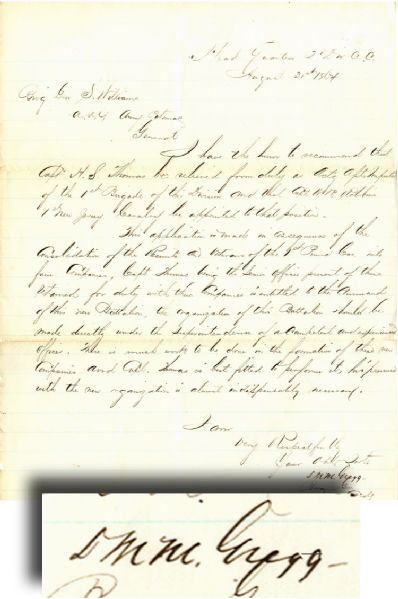 Head Quarters 2d Div C.C.
August 21st 1864
Brig Gen S. Williams
A.A.G Army Potomac
General
I have the honor to recommend that
Capt. H. S. Thomas be relieved from duty as
of the 1st Brigade of the Division and that
1st New Jersey Cavalry be appointed to that position.
This application is made in consequence of the
Consolidation of the Recruits and Veterans of the 1st Penna Cav into
four Companies, Capt Thomas being the Senior officer present of those
for duty with these Companies is entitled to the Command
of this new Battalion, the organization of this Battalion should be
made directly under the Superintendence of a Competent and experienced
officer. There is much work to be done in the formation of these new
Companies and Capt. Thomas is best fitted to perform it, his presence
with the new organization is almost indispensably necessary.
I am
Very Respectfully
Your Obt Svt
D MM. Gregg
D MM. Gregg